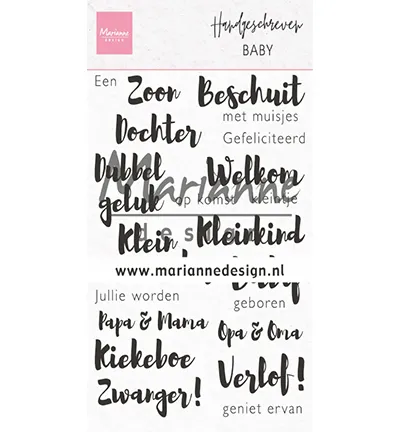 Marianne
DESIGN
Handgeschreven
BABY
Een
Zoon
Beschuit
met muisjes
Dochter
Gefeliciteerd
Dubbel
geluk
Welkom
op komst
kleintje
Marianne
design
Klein
Kleinkind
www.mariannedesign.nl
Jullie worden
geboren
Papa & Mama
Opa & Oma
Kiekeboe
Verlof!
Zwanger!
geniet ervan